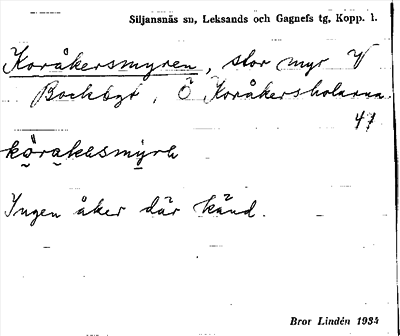 Siljansnäs sn, Leksands och Gagnefs tg, Kopp. l.
Koråkersmyren, stor myr V
Backbyt, Ö Koråkersholarna.
47
Ingen åker där känd.
Bror Lindén 1934